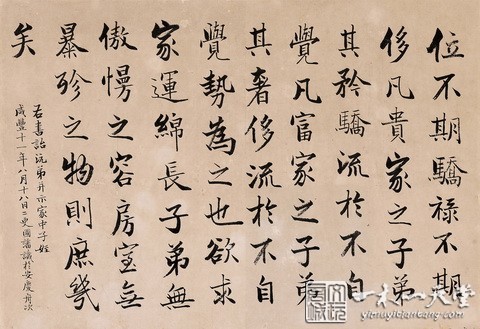 位不期驕禄不期
侈凡貴家之子弟
其矜驕流於不自
覺凡富家之子弟
其奢侈流於不自
覺勢為之也欲求
家運綿長子弟無
傲慢之容房室無
暴殄之物則庶幾
矣
右書詒沅弟并示家中子姪
咸豐十一年八月十八日二更國藩識於安慶舟次
一木一天堂
yimuyitiantang.com